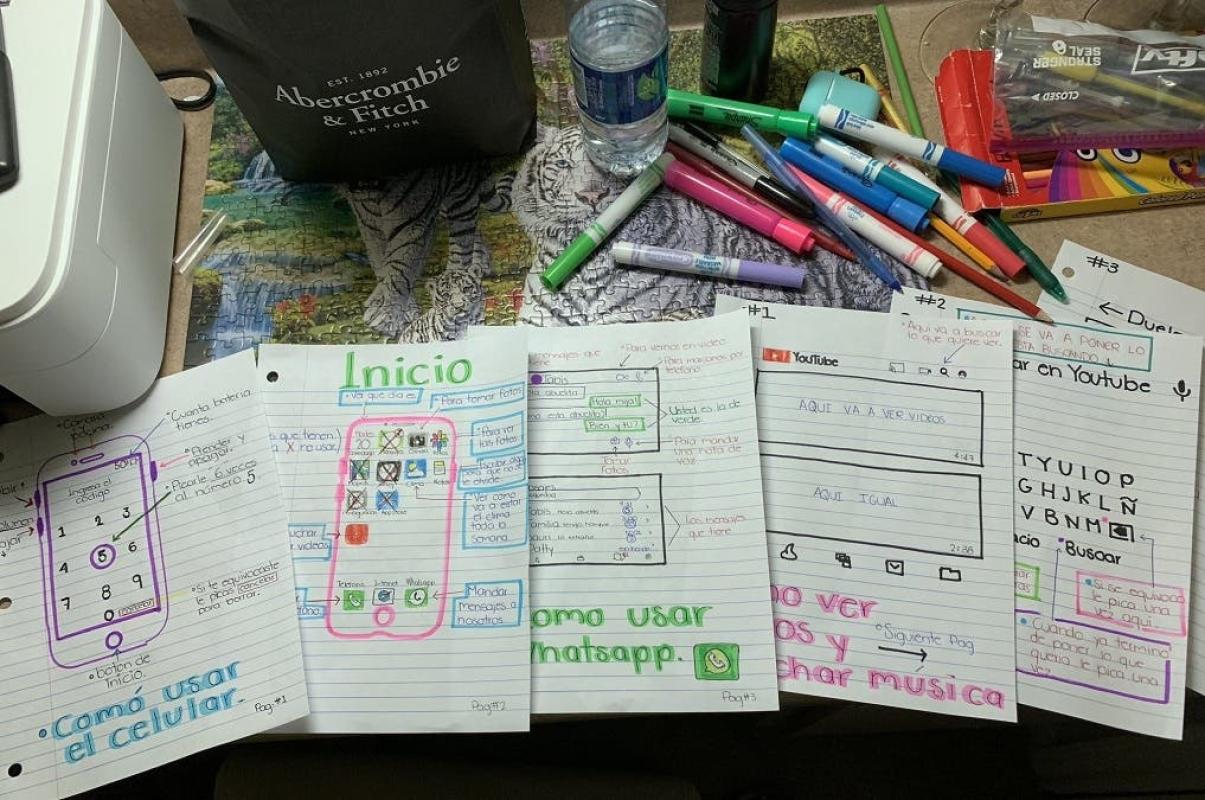 EST. 1892
Abercrombie
& Fitch
NEW YORK
STRONGER
SEAL
CLOSED
Cuanta bateria
tienes.
Prender y
apagar.
Picarle 6 veces
al número 5.
50%
Ingresa el
código
1 2 3
4 5 6
7 8 9
0 cancelar
Si te equivocaste
le picas cancelar
para borrar.
botón de
Inicio.
Comó usar
el celular.
Pag:#1
Inicio
Va que dia es
Para tomar fotos
s que tienen
X no usar
20
Para ver
las fotos.
Ver como
va a estar
el clima
toda la
semana
Telefono Internet Whatsapp
Mandar
mensajes a
nosotros.
Pag#2
mensajes que
Para vernos en video
Para marcarnos por
telefono
Hola mija!
Bien y tu?
Usted es la de
verde.
Para mandar
una nota de
voz.
Tomar
Fotos
Los mensajes
que tiene
omo usar
Whatsapp.
Pag#3
#1
Aqui va a buscar
lo que quiere ver.
YouTube
AQUI VA A VER VIDEOS
AQUI IGUAL
2:38
o ver
os y
char musica
Siguiente Pag
#2
SE VA A PONER LO
STA BUSCANDO
ar en Youtube
T Y U I O P
G H J K L Ñ
V B N M
cio
Buscar
Si se equivoco
le pica una
vez aqui.
Cuando ya termino
de poner lo que
queria le pica una
vez
#3